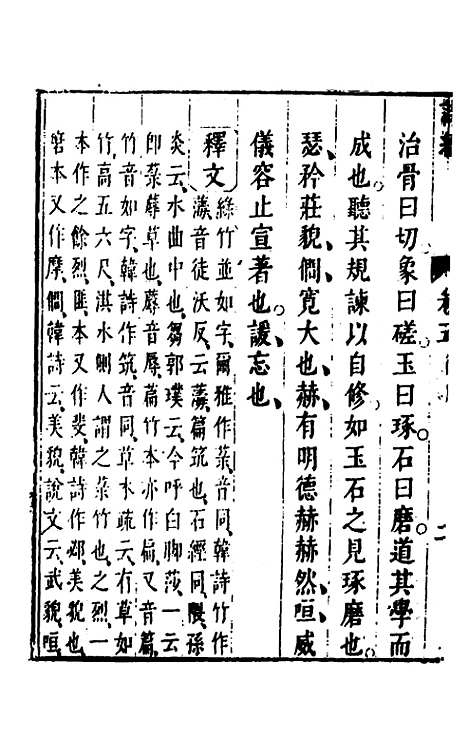 治骨曰切。象曰磋。玉曰琢。石曰磨。道其學而
成也。聽其規諫以自修。如玉石之見琢磨也。
瑟、矜莊貌、僩、寛大也、赫、有明德赫赫然、咺、威
儀容止宣著也。諼、忘也、
釋文 綠竹並如字、爾雅作菉、音同、韓詩竹作
薄、音徒沃反、云薄、萹筑也、石經同、隩、孫
炎云、水曲中也、芻郭璞云、今呼白脚莎、一云
卽菉蓐草也、蓐音辱、萹竹本亦作扁、又音篇、
竹音如字、韓詩作筑、音同、草木疏云、有草如
竹、高五六尺、淇水側人謂之菉竹也、之烈、一
本作之餘烈、匪本又作斐、韓詩作邲、美貌也、
磨本又作摩、僩、韓詩云、美貌、說文云、武貌、咺、